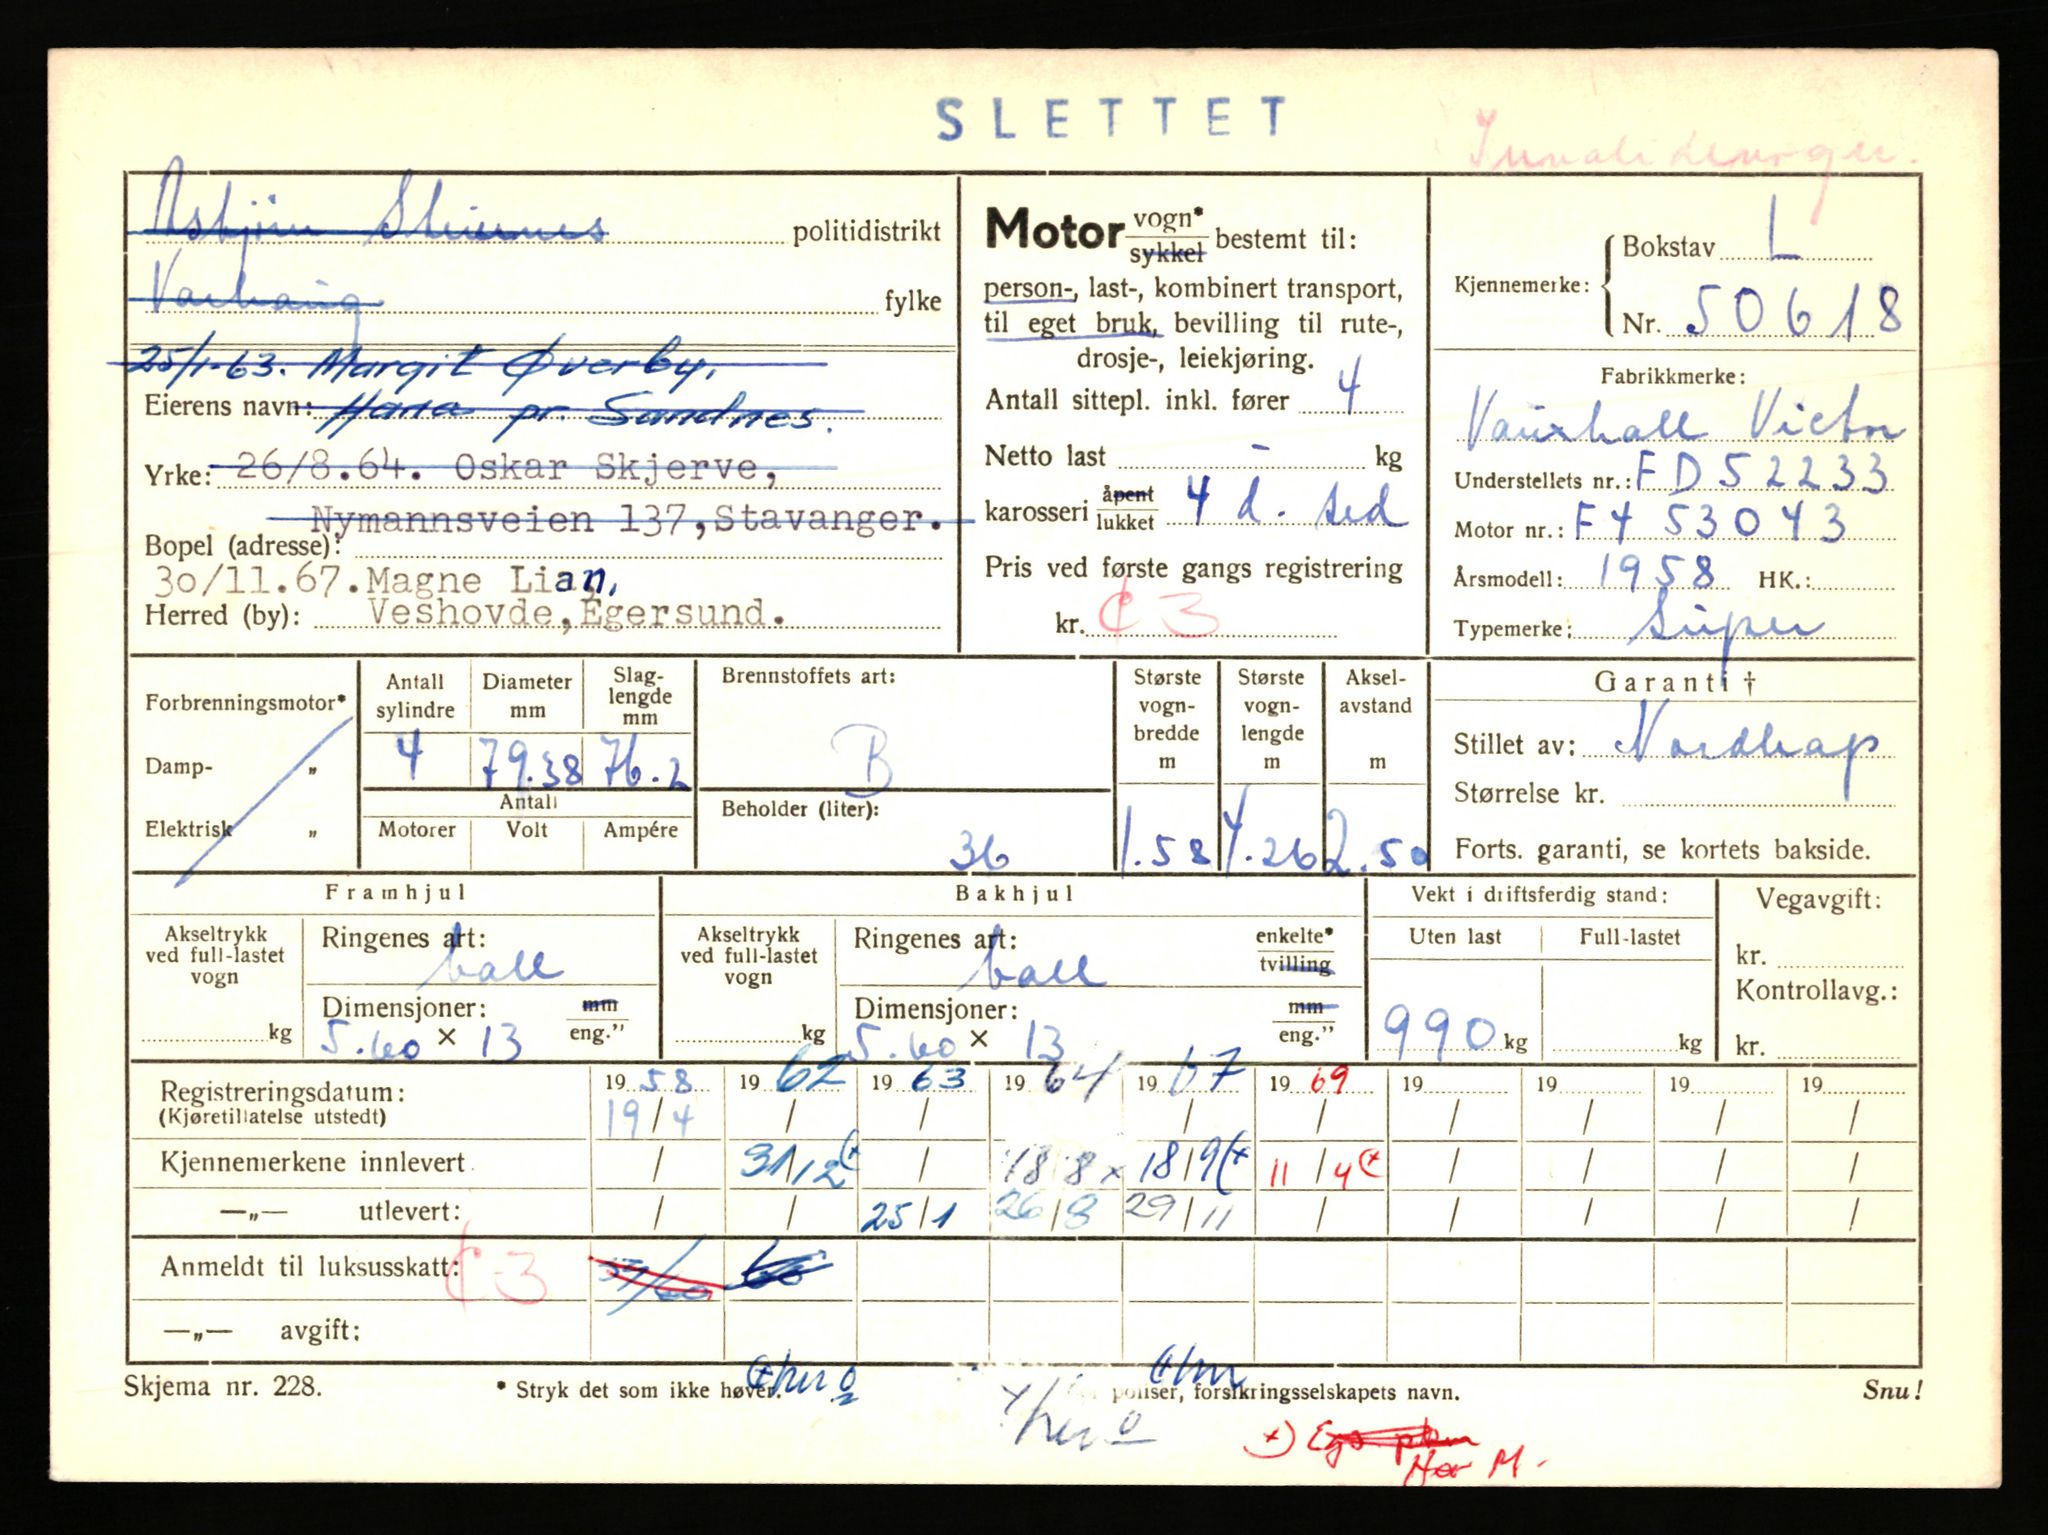 SLETTET
politidistrikt
Varhaug fylke
25/1-63. Margit Øverby,
Eierens navn: Hana pr. Sandnes.
Yrke: 26/8.64. Oskar Skjerve,
Nymannsveien 137, Stavanger.
Bopel (adresse):
30/11.67. Magne Lian,
Herred (by): Veshovde, Egersund.
Motor vogn*
sykkel bestemt til:
person-, last-, kombinert transport,
til eget bruk, bevilling til rute-,
drosje-, leiekjøring.
Antall sittepl. inkl. fører 4
Netto last - kg
karosseri åpent
lukket 4 d. sed
Pris ved første gangs registrering
kr. ₵ 3
Kjennemerke: Bokstav L
Nr. 50618
Fabrikkmerke:
Vauxhall Victor
Understellets nr.: FD52233
Motor nr.: F4 53043
Årsmodell: 1958 HK.:
Typemerke: Super
Forbrenningsmotor*
Damp- „
Elektrisk „
Antall sylindre 4
Diameter mm 79.38
Slag-lengde mm 76.2
Antall
Motorer Volt Ampére
Brennstoffets art:
B
Beholder (liter):
36
Største vogn-bredde m 1.58
Største vogn-lengde m 4.26
Aksel-avstand m 2.50
Garanti †
Stillet av: Nordkap
Størrelse kr.
Forts. garanti, se kortets bakside.
Framhjul
Akseltrykk ved full-lastet vogn
kg
Ringenes art:
ball
Dimensjoner: mm
5.60 × 13 eng.”
Bakhjul
Akseltrykk ved full-lastet vogn
kg
Ringenes art: enkelte*
ball tvilling
Dimensjoner: mm
5.60 × 13 eng.”
Vekt i driftsferdig stand:
Uten last Full-lastet
990 kg kg
Vegavgift:
kr.
Kontrollavg.:
kr.
Registreringsdatum: 1958 1962 1963 1964 1967 1969 19 19 19 19
(Kjøretillatelse utstedt) 19/4 / / / / / / / /
Kjennemerkene innlevert / 31/12 (x / 18/8 x 18/9 (x 11/4 (x / / / /
—„— utlevert: / / 25/1 26/8 29/11 / / / / /
Anmeldt til luksusskatt: ₵ 3
—„— avgift:
Skjema nr. 228. * Stryk det som ikke høver. poliser, forsikringsselskapets navn. Snu!